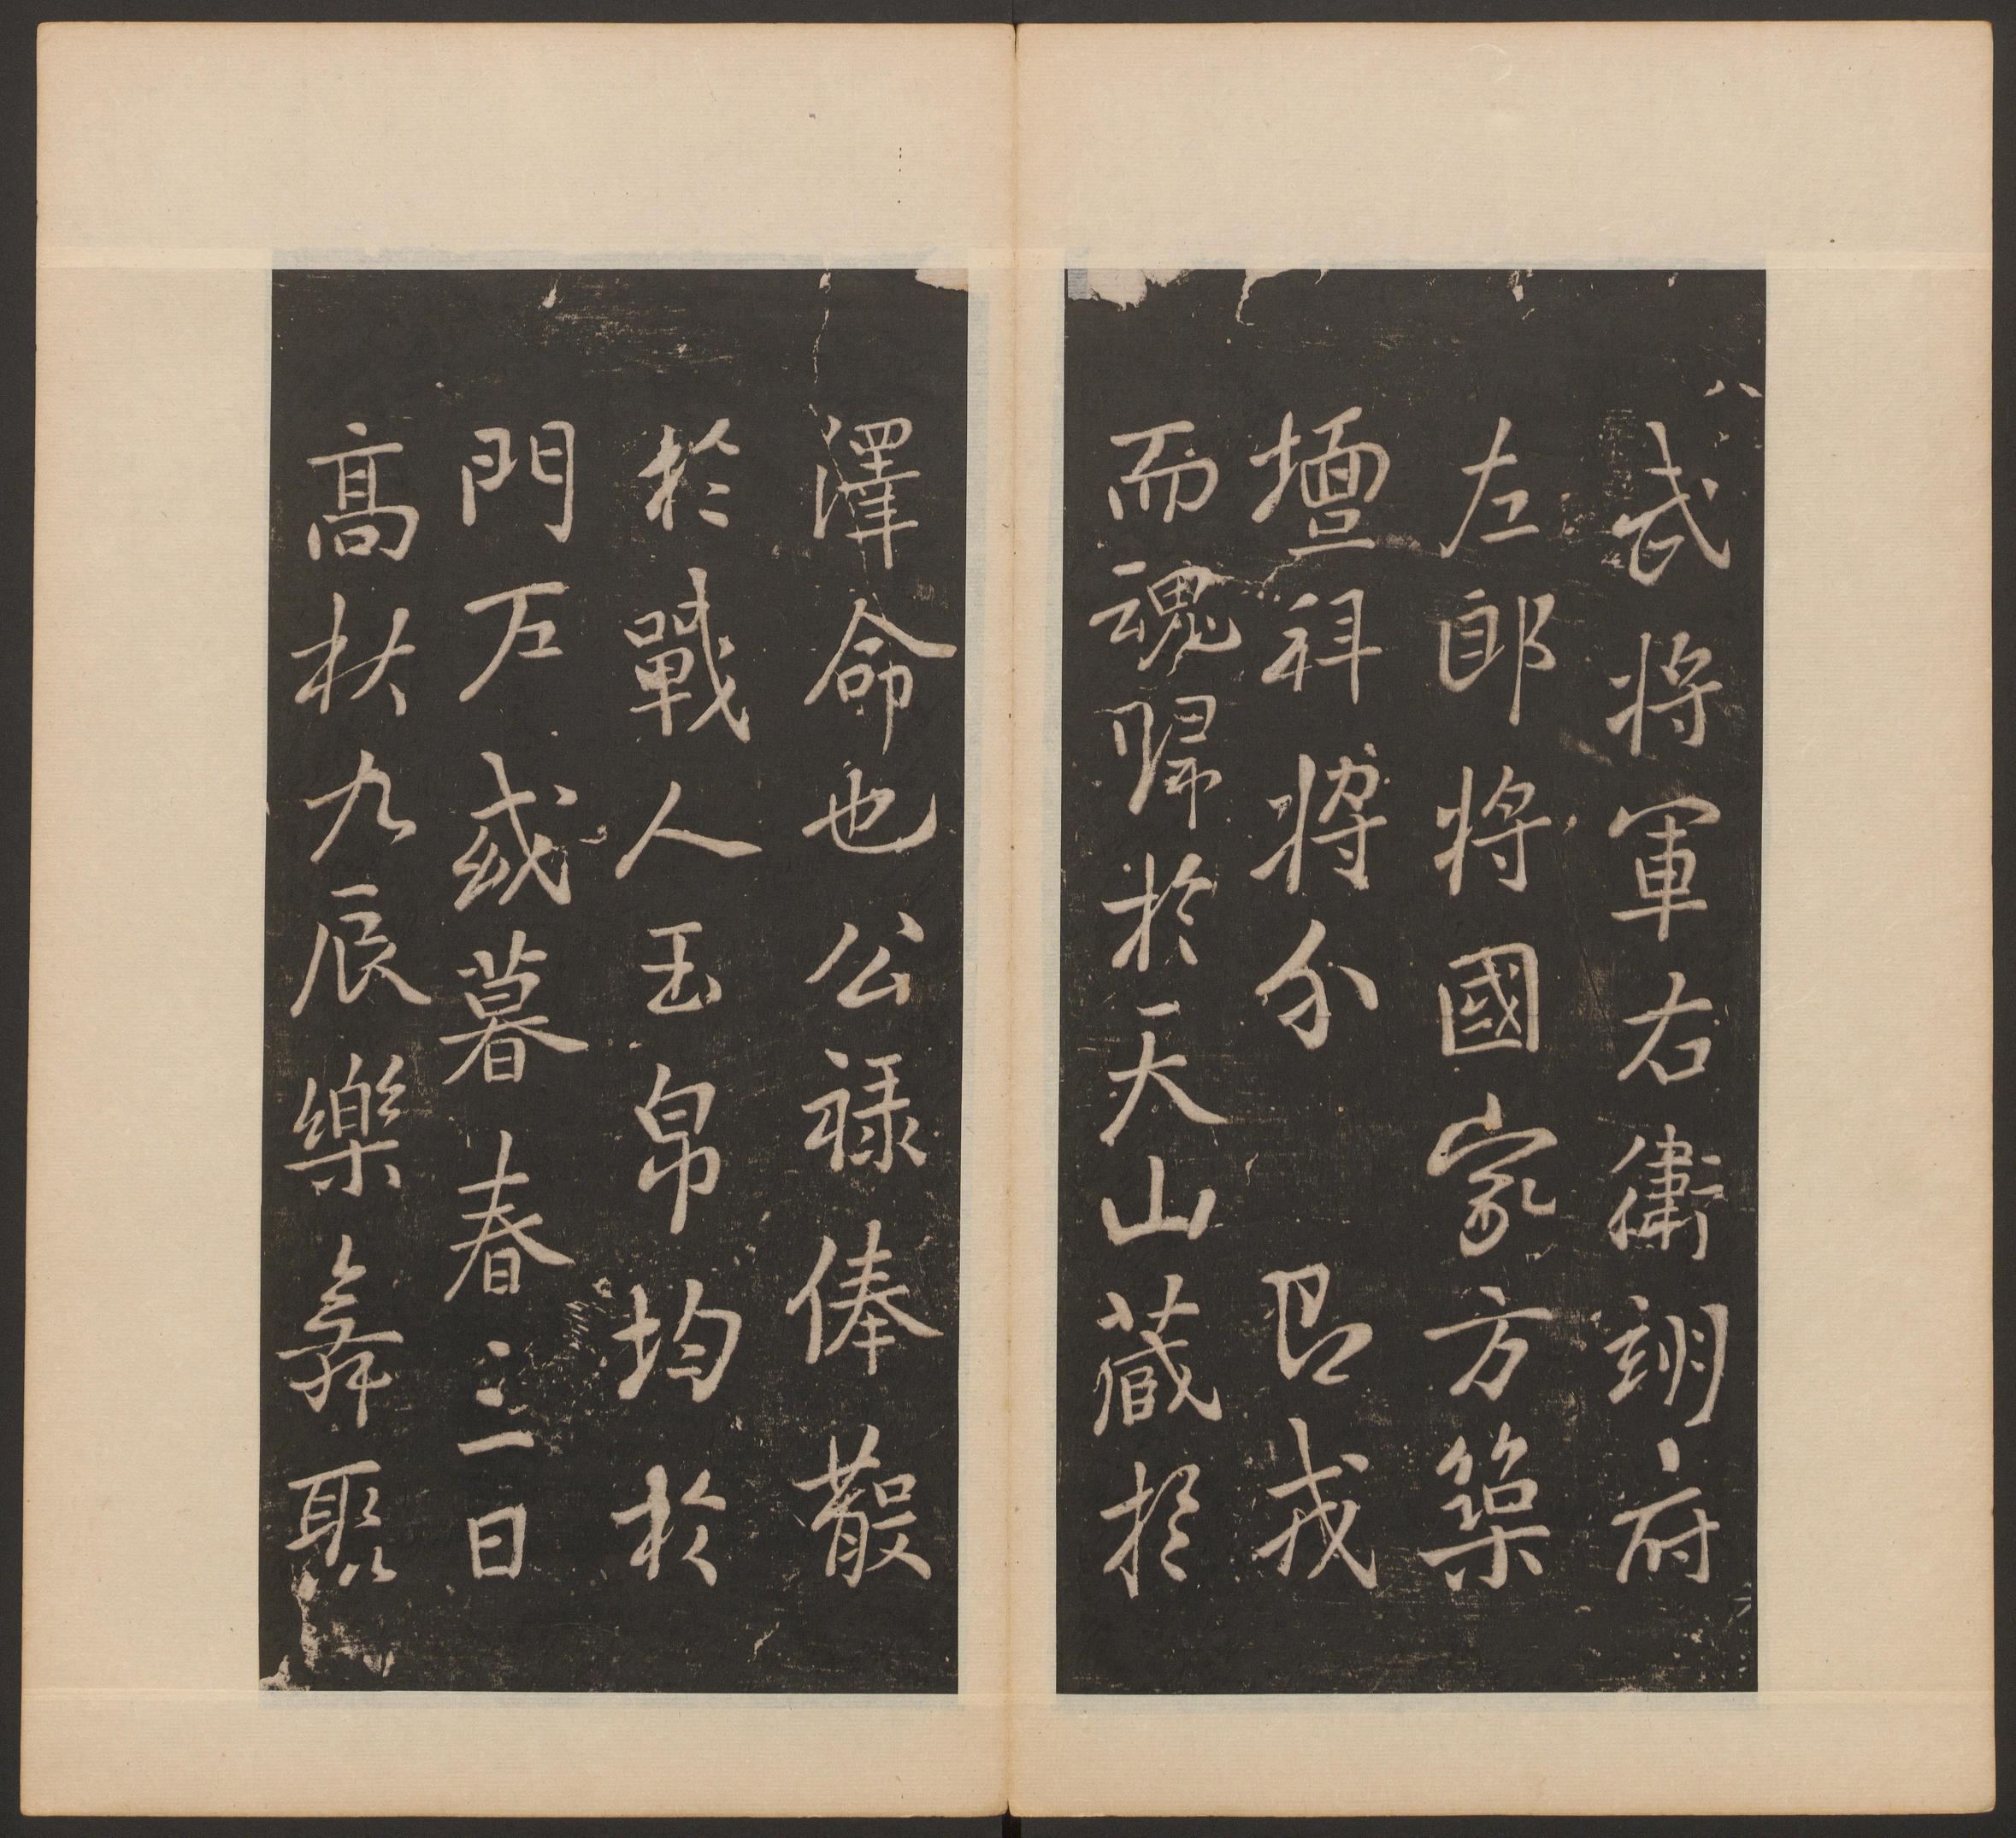 武將軍右衛翊府
左郎將國家方築
壇科將分戎
而魂歸於天山藏於
澤命也公祿俸散
於戰人玉帛均於
門左或暮春三日
高秋九辰樂舞聚